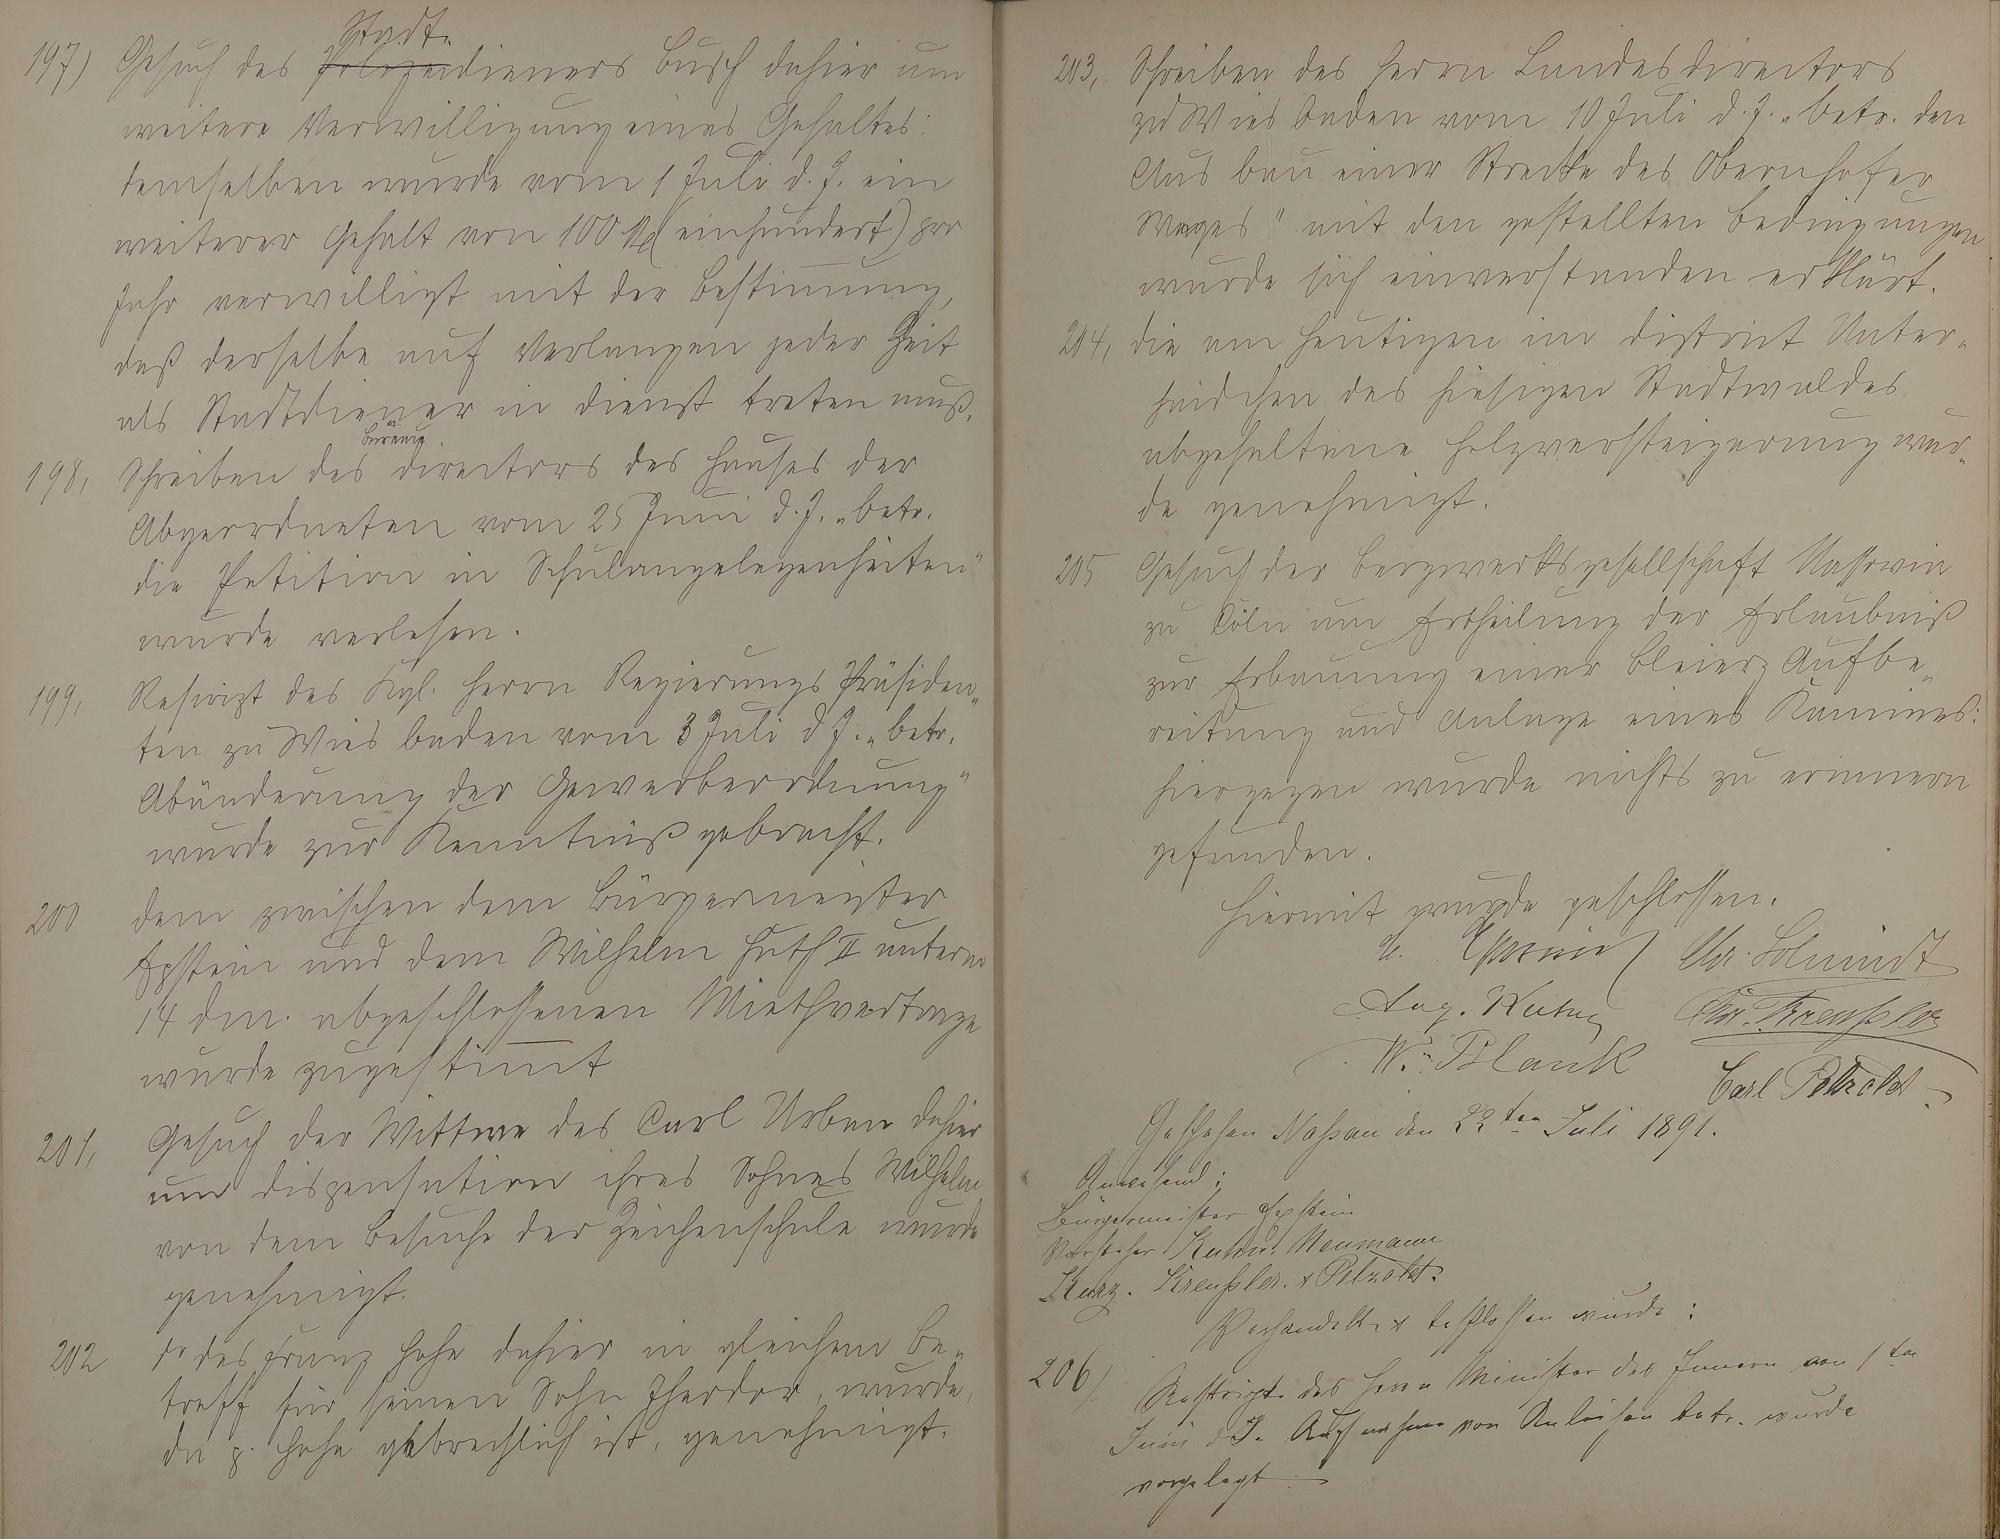 Stadt-
197) Gesuch des Polizeidieners Busch dahier um
weitere Verwilligung eines Gehaltes:
demselben wurde vom 1 Juli d. J. ein
weiterer Gehalt von 100 M (einhundert) pro
Jahr verwilligt mit der Bestimmung,
daß derselbe auf Verlangen jeder Zeit
als Stadtdiener in Dienst treten muß.
Bureau
198, Schreiben des Directors des Hauses der
Abgeordneten vom 25 Juni d. J. „betr.
die Petition in Schulangelegenheiten"
wurde verlesen.
199, Rescript des Kgl. Herrn Regierungs Präsiden„
ten zu Wiesbaden vom 3 Juli d J. „betr.
Abänderung der Gewerbeordnung"
wurde zur Kenntniß gebracht.
200 Dem zwischen dem Bürgermeister
Epstein und dem Wilhelm Huth II unterm
14 dM. abgeschlossenen Miethvertrage
wurde zugestimmt
201, Gesuch der Wittwe des Carl Urban dahier
um Dispensation ihres Sohnes Wilhelm
von dem Besuche der Zeichenschule wurde
genehmigt.
202 do des Franz Hohe dahier in gleichem Be„
treff für seinen Sohn Theodor, wurde,
da p. Hohe gebrechlich ist, genehmigt.
203, Schreiben des Herrn Landesdirectors
zu Wiesbaden vom 10 Juli d. J. „betr. den
Ausbau einer Strecke des Obernhofer
Weges" mit den gestellten Bedingungen
wurde sich einverstanden erklärt.
204, Die am Heutigen im District Unter„
haidchen des hiesigen Stadtwaldes
abgehaltene Holzversteigerung wur„
de genehmigt.
205 Gesuch der Bergwerksgesellschaft Nassovia
zu Cöln um Ertheilung der Erlaubniß
zur Erbauung einer Bleierz Aufbe„
reitung und Anlage eines Kamines:
hiergegen wurde nichts zu erinnern
gefunden.
Hiermit wurde geschlossen.
Chr. Schmidt
Aug. Chr. Kreußler
W. Blank
Carl Petzold
Geschehen Naßau den 22ten Juli 1891.
Anwesend:
Bürgermeister Epstein
Vorsteher Kuhn, Neumann
Kurz. Kreußler. & Petzold.
Verhandelt & beschlossen wurde:
206) Rescript des Herrn Minister des Innern von 1ten
Juni d J. Aufnahme von Anleihen betr. wurde
vorgelegt